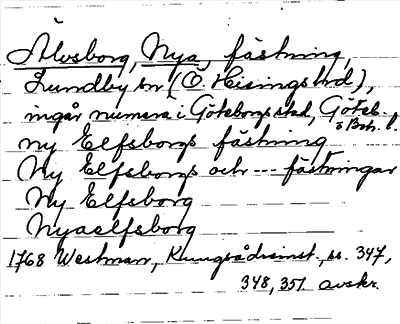 Älvsborg, Nya, fästning,
Lundby sn (Ö. Hisings hd),
ingår numera i Göteborgs stad, Göteb.
o Boh. l.
ny Elfsborgs fästning
Ny Elfsborgs och --- fästningar
Ny Elfsborg
Nyaelfsborg
1768 Westman, Kungsådreinst., ss. 347,
348, 351 avskr.